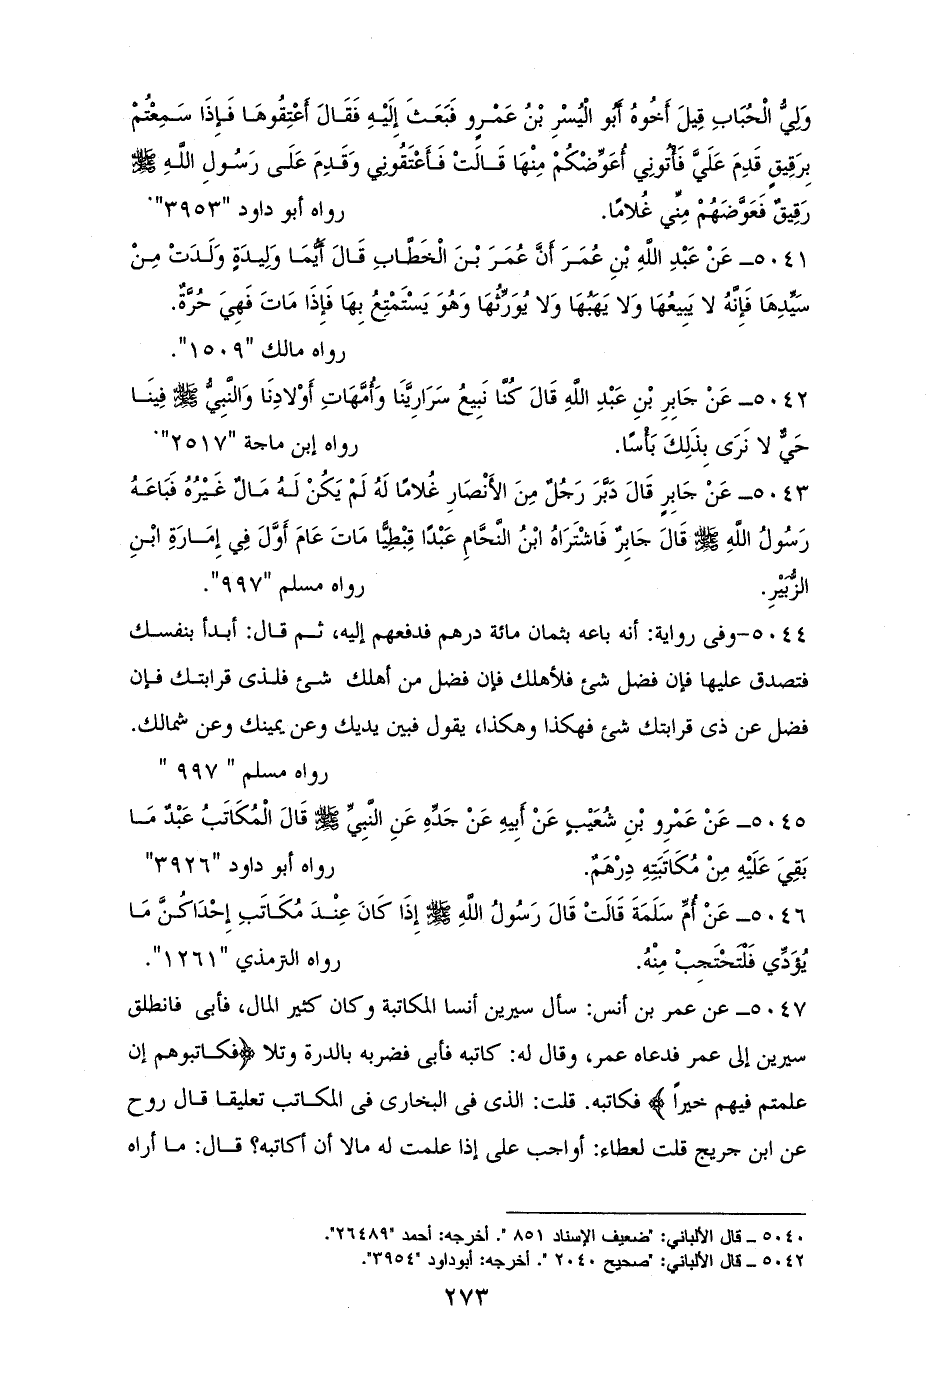 وَلِيُّ الْحُبَابِ قِيلَ أَخُوهُ أَبُو الْيُسْرِ بْنُ عَمْرٍو فَبَعَثَ إِلَيْهِ فَقَالَ أَعْتِقُوهَا فَإِذَا سَمِعْتُمْ
بِرَقِيقٍ قَدِمَ عَلَيَّ فَأْتُونِي أُعَوِّضْكُمْ مِنْهَا قَالَتْ فَأَعْتَقُونِي وَقَدِمَ عَلَى رَسُولِ اللَّهِ ﷺ
رَقِيقٌ فَعَوَّضَهُمْ مِنِّي غُلامًا. رواه أبو داود "٣٩٥٣".
٥٠٤١ـ عَنْ عَبْدِ اللَّهِ بْنِ عُمَرَ أَنَّ عُمَرَ بْنَ الْخَطَّابِ قَالَ أَيُّمَا وَلِيدَةٍ وَلَدَتْ مِنْ
سَيِّدِهَا فَإِنَّهُ لا يَبِيعُهَا وَلا يَهَبُهَا وَلا يُوَرِّثُهَا وَهُوَ يَسْتَمْتِعُ بِهَا فَإِذَا مَاتَ فَهِيَ حُرَّةٌ.
رواه مالك "١٥٠٩".
٥٠٤٢ـ عَنْ جَابِرِ بْنِ عَبْدِ اللَّهِ قَالَ كُنَّا نَبِيعُ سَرَارِيَّنَا وَأُمَّهَاتِ أَوْلادِنَا وَالنَّبِيُّ ﷺ فِينَا
حَيٌّ لا نَرَى بِذَلِكَ بَأْسًا. رواه إبن ماجة "٢٥١٧".
٥٠٤٣ـ عَنْ جَابِرٍ قَالَ دَبَّرَ رَجُلٌ مِنَ الأَنْصَارِ غُلامًا لَهُ لَمْ يَكُنْ لَهُ مَالٌ غَيْرُهُ فَبَاعَهُ
رَسُولُ اللَّهِ ﷺ قَالَ جَابِرٌ فَاشْتَرَاهُ ابْنُ النَّحَّامِ عَبْدًا قِبْطِيًّا مَاتَ عَامَ أَوَّلَ فِي إِمَارَةِ ابْنِ
الزُّبَيْرِ. رواه مسلم "٩٩٧".
٥٠٤٤-وفى رواية: أنه باعه بثمان مائة درهم فدفعهم إليه، ثم قال: أبدأ بنفسك
فتصدق عليها فإن فضل شئ فلأهلك فإن فضل من أهلك شئ فلذى قرابتك فإن
فضل عن ذى قرابتك شئ فهكذا وهكذا، يقول فبين يديك وعن يمينك وعن شمالك.
رواه مسلم " ٩٩٧ "
٥٠٤٥ـ عَنْ عَمْرِو بْنِ شُعَيْبٍ عَنْ أَبِيهِ عَنْ جَدِّهِ عَنِ النَّبِيِّ ﷺ قَالَ الْمُكَاتَبُ عَبْدٌ مَا
بَقِيَ عَلَيْهِ مِنْ مُكَاتَبَتِهِ دِرْهَمٌ. رواه أبو داود "٣٩٢٦"
٥٠٤٦ـ عَنْ أُمِّ سَلَمَةَ قَالَتْ قَالَ رَسُولُ اللَّهِ ﷺ إِذَا كَانَ عِنْدَ مُكَاتَبِ إِحْدَاكُنَّ مَا
يُؤَدِّي فَلْتَحْتَجِبْ مِنْهُ. رواه الترمذي "١٢٦١".
٥٠٤٧ـ عن عمر بن أنس: سأل سيرين أنسا المكاتبة وكان كثير المال، فأبى فانطلق
سيرين إلى عمر فدعاه عمر، وقال له: كاتبه فأبى فضربه بالدرة وتلا ﴿فكاتبوهم إن
علمتم فيهم خيراً ﴾ فكاتبه. قلت: الذى فى البخارى فى المكاتب تعليقا قال روح
عن ابن جريج قلت لعطاء: أواجب على إذا علمت له مالا أن أكاتبه؟ قال: ما أراه
٥٠٤٠ ـ قال الألباني: "ضعيف الإسناد ٨٥١ ". أخرجه: أحمد "٢٦٤٨٩".
٥٠٤٢ ـ قال الألباني: "صحيح ٢٠٤٠ ". أخرجه: أبوداود "٣٩٥٤".
٢٧٣